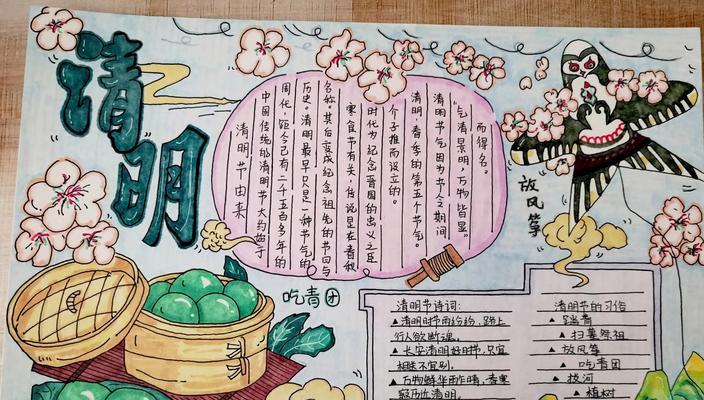 清明
清明节由来
中国传统的清明节大约始于
周代，距今已有二千五百多年的
历史。清明最早只是一种节气的
名称，其后变成纪念祖先的节日与
寒食节有关，传说是在春秋
时代为纪念晋国的忠义之臣
介子推而设立的。
清明，春季的第五个节气。
清明节气因为节令期间
“气清景明，万物皆显”
而得名。
放风筝
吃青团
清明节诗词:
▲清明时节雨纷纷，路上
行人欲断魂。
▲长安清明好时节，只宜
相送不宜别。
▲万物鲜华雨乍晴，春寒
寂历近清明。
清明节的习俗
▲踏青
▲扫墓祭祖
▲放风筝
▲吃青团
▲拔河
▲植树